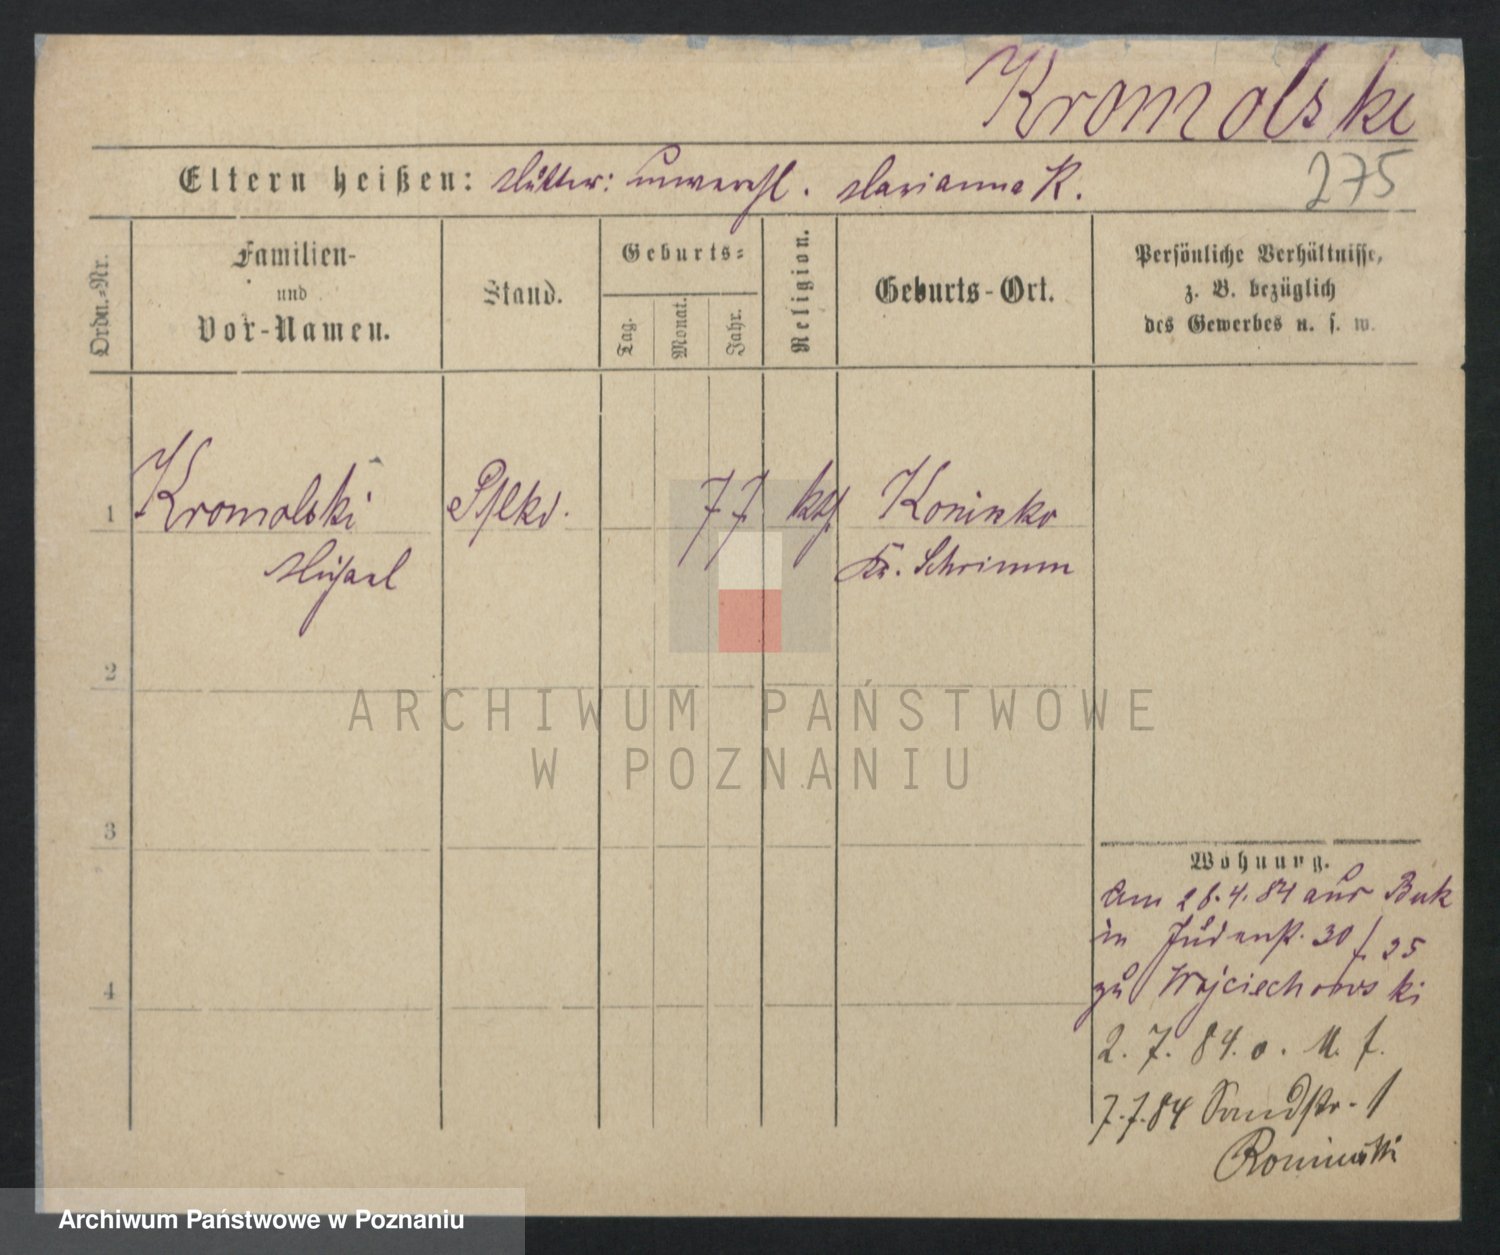 Kromolski
Eltern heißen: Mutter: unverehl. Marianna K.
275
Ordn.-Nr.
Familien-
und
Vor-Namen.
Stand.
Geburts-
Tag.
Monat.
Jahr.
Religion.
Geburts-Ort.
Persönliche Verhältnisse,
z. B. bezüglich
des Gewerbes u. s. w.
1
Kromolski
Michael
Pflkd.
77
kth.
Koninko
Kr. Schrimm
2
3
4
Wohnung.
Am 28.4.84 aus Buk
in Judenstr. 30 / 25
zu Wojciechowski
2. 7. 84. o. M. f.
7.7.84 Sandstr. 1
ARCHIWUM PAŃSTWOWE
W POZNANIU
Archiwum Państwowe w Poznaniu